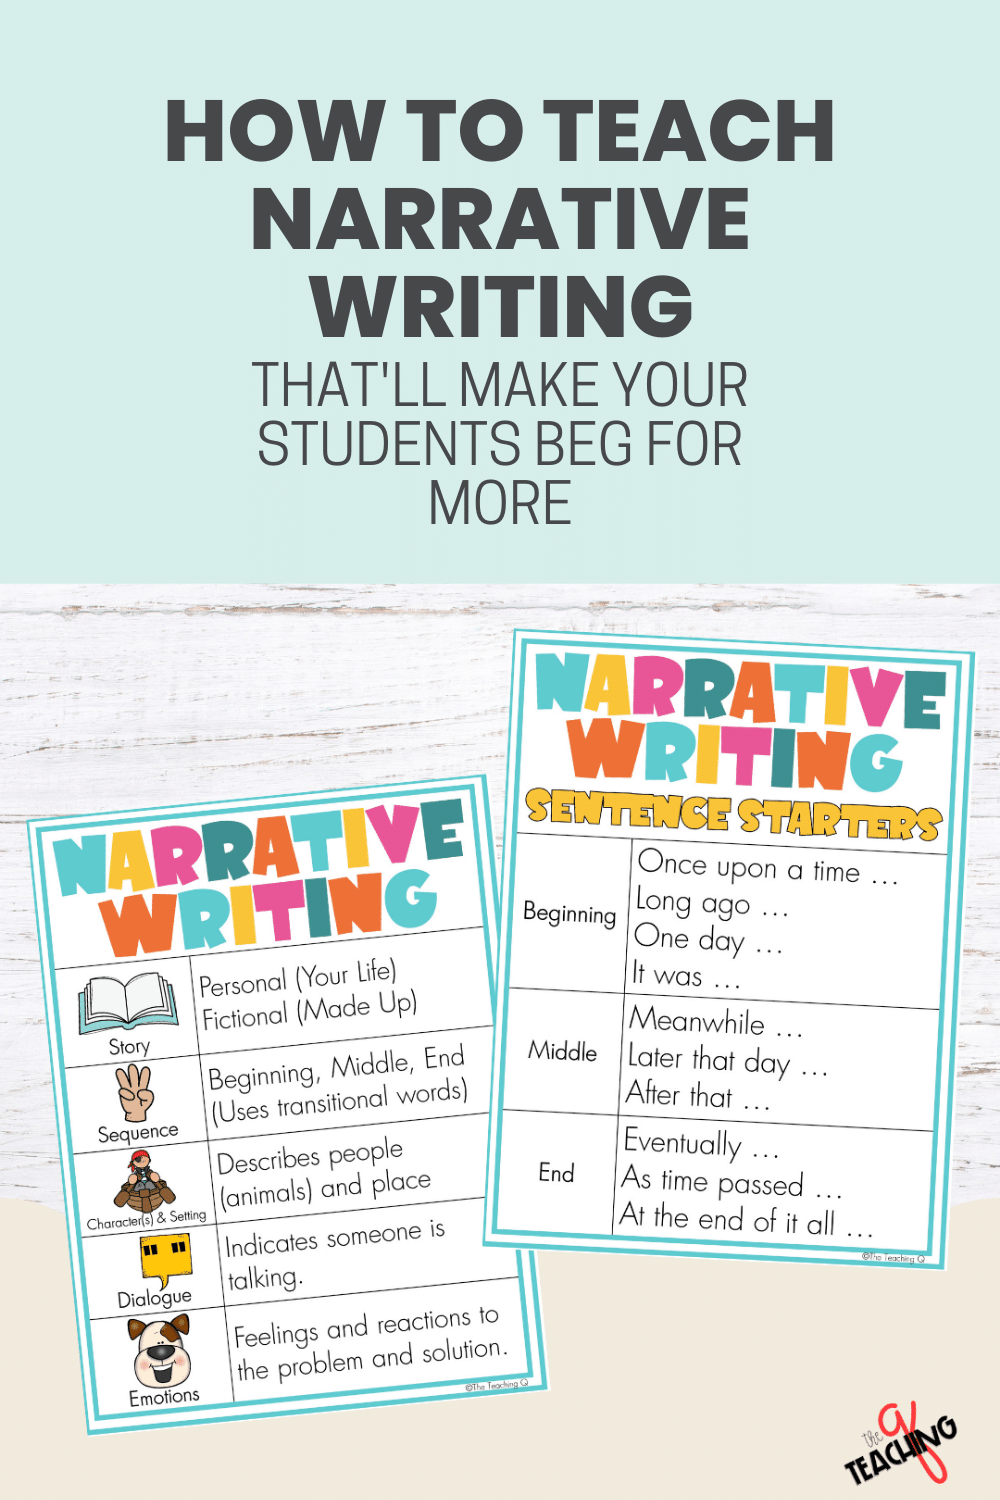 HOW TO TEACH
NARRATIVE
WRITING
THAT'LL MAKE YOUR
STUDENTS BEG FOR
MORE
NARRATIVE
WRITING
Story
Personal (Your Life)
Fictional (Made Up)
Sequence
Beginning, Middle, End
(Uses transitional words)
Character(s) & Setting
Describes people
(animals) and place
Dialogue
Indicates someone is
talking.
Emotions
Feelings and reactions to
the problem and solution.
©The Teaching Q
NARRATIVE
WRITING
SENTENCE STARTERS
Beginning
Once upon a time ...
Long ago ...
One day ...
It was ...
Middle
Meanwhile ...
Later that day ...
After that ...
End
Eventually ...
As time passed ...
At the end of it all ...
©The Teaching Q
the Q
TEACHING